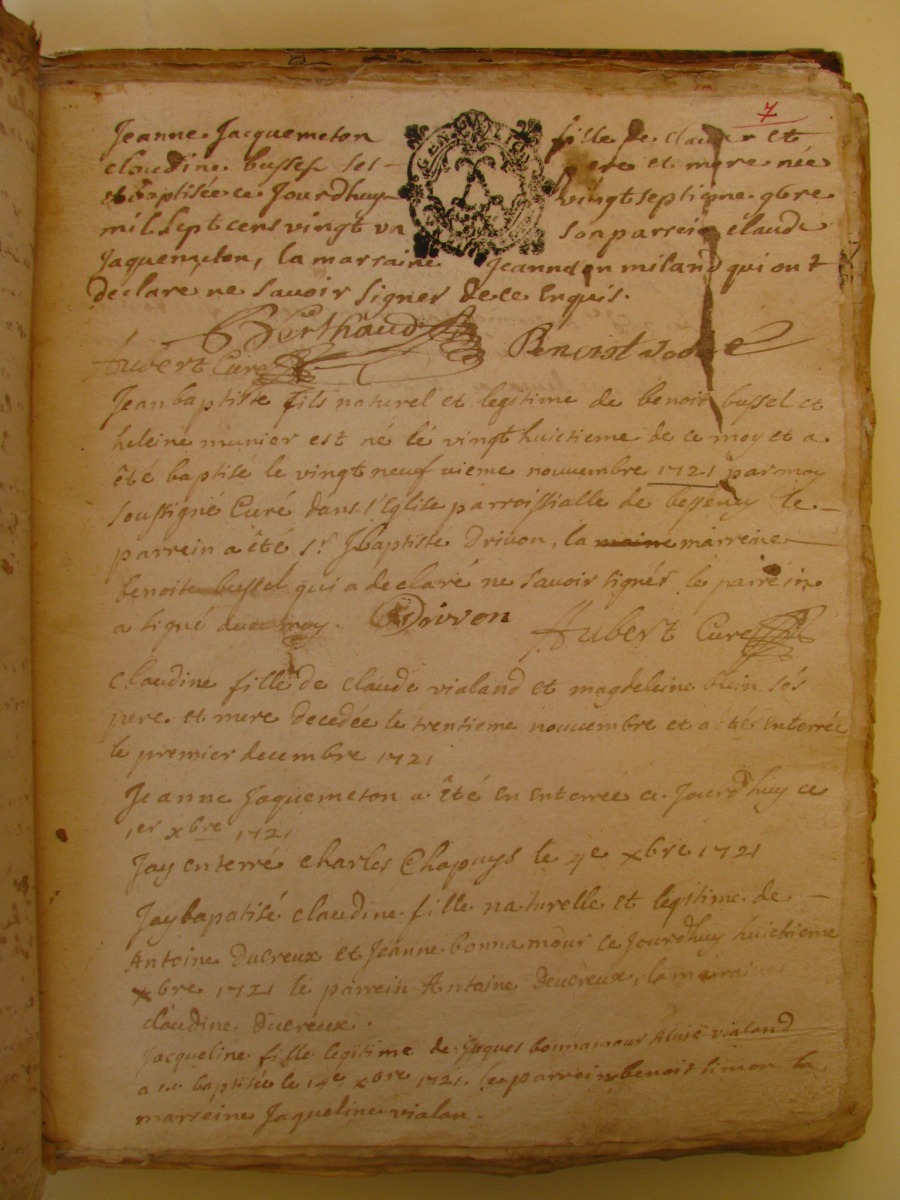 7
Jeanne Jacquemeton fille de claude et
claudine bussel ses pere et mere née
et baptisée ce Jourdhuy vingt septieme 9bre
mil sept cens vingt un son parrein claude
Jaquemeton, la marraine Jeanne milan qui ont
declare ne savoir signer de ce enquis.
Berthaud
Benoist
Aubert Curé
Jean baptiste fils naturel et legitime de benoit bussel et
heleine munier est né le vingt huictieme de ce moy et a
êté baptisé le vingt neuf vieme nouuembre 1721 par moy
soussigné Curé dans l'Eglise parroissialle de bessenay le
parrein a êté Sr Jbaptiste Drivon, la marreine
benoite bussel qui a declaré ne savoir signér le parrein
a signé avec moy. Drivon
Aubert Curé
Claudine fille de claude vialand et magdeleine blein ses
pere et mere decedée le trentieme nouuembre et a etés enterrée
le premier decembre 1721
Jeanne Jaquemeton a êté en enterree ce Jourdhuy ce
1er xbre 1721
Jay enterré charles Chapuys le 4e xbre 1721
Jay bapatisé claudine fille naturelle et legitime de
Antoine Ducreux et Jeanne bonnamour ce Jourdhuy huictieme
xbre 1721 le parrein Antoine deucreux, la marraine
claudine Ducreux.
Jacqueline fille legitime de Jaques bonnamour vialand
a été baptisée le 14e xbre 1721. le parrein benoit simon la
marreine Jaqueline vialan.